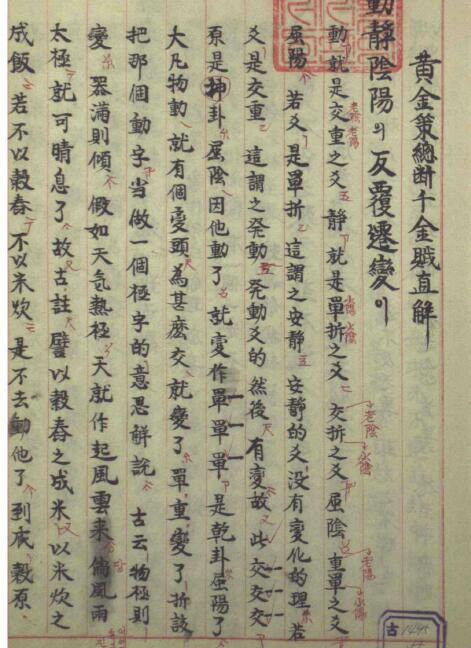 黃金策總断千金賦直解
動靜陰陽의反覆遷變이
動就是交重之爻 靜就是單折之爻 交折之爻屬陰 重單之爻
屬陽 若爻是單折 這謂之安靜 安靜的爻没有變化的理 若
爻是交重 這謂之発動 発動爻的然後有變故 此交交交
原是坤卦屬陰 因他動了 就変作單單單 是乾卦屬陽了
大凡物動 就有個変頭 為甚麽交就變了單 重變了折 該
把那個動字当做一個極字的意思解說 古云 物極則
變 器滿則傾 假如天気熱極 天就作起風雲来 倘風雨
太極 就可晴息了 故古註 譬以穀舂之成米 以米炊之
成飯 若不以穀舂 不以米炊 是不去動他了 到底穀原
老陰 老陽
少陽 少陰
老陰
少陰
老陽
少陽
古 1495